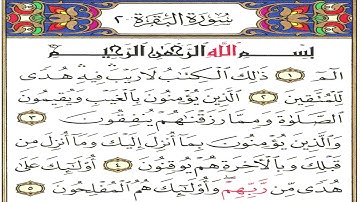 سُورَةُ البَقَرَة ٢
بِسْمِ اللَّهِ الرَّحْمَٰنِ الرَّحِيمِ
الٓمٓ ١ ذَٰلِكَ الْكِتَابُ لَا رَيْبَ فِيهِ هُدًى
لِّلْمُتَّقِينَ ٢ الَّذِينَ يُؤْمِنُونَ بِالْغَيْبِ وَيُقِيمُونَ
الصَّلَوٰةَ وَمِمَّا رَزَقْنَاهُمْ يُنفِقُونَ ٣
وَالَّذِينَ يُؤْمِنُونَ بِمَا أُنزِلَ إِلَيْكَ وَمَا أُنزِلَ مِن
قَبْلِكَ وَبِالْآخِرَةِ هُمْ يُوقِنُونَ ٤ أُولَٰئِكَ عَلَىٰ
هُدًى مِّن رَّبِّهِمْ وَأُولَٰئِكَ هُمُ الْمُفْلِحُونَ ٥